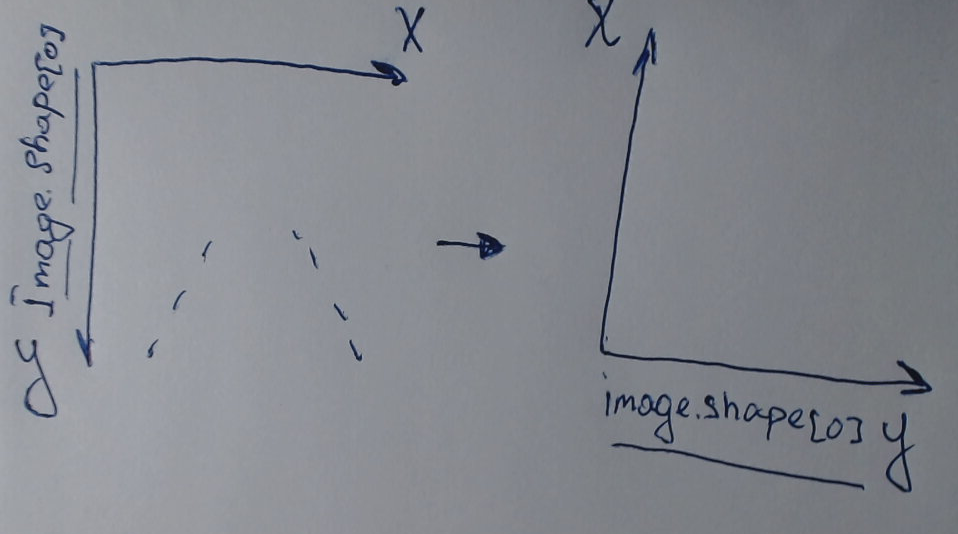 X
Image.shape[0]
y
X
image.shape[0] y